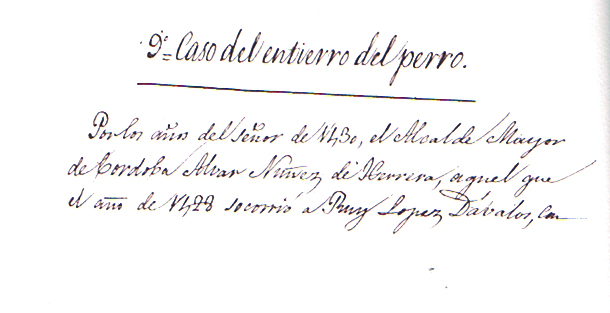 9º= Caso del entierro del perro.
Por los años del señor de 1430, el Alcalde Mayor
de Cordoba Alvar Nuñez de Herrera, aquel que
el año de 1428 socorrió a Ruy Lopez Dávalos, con